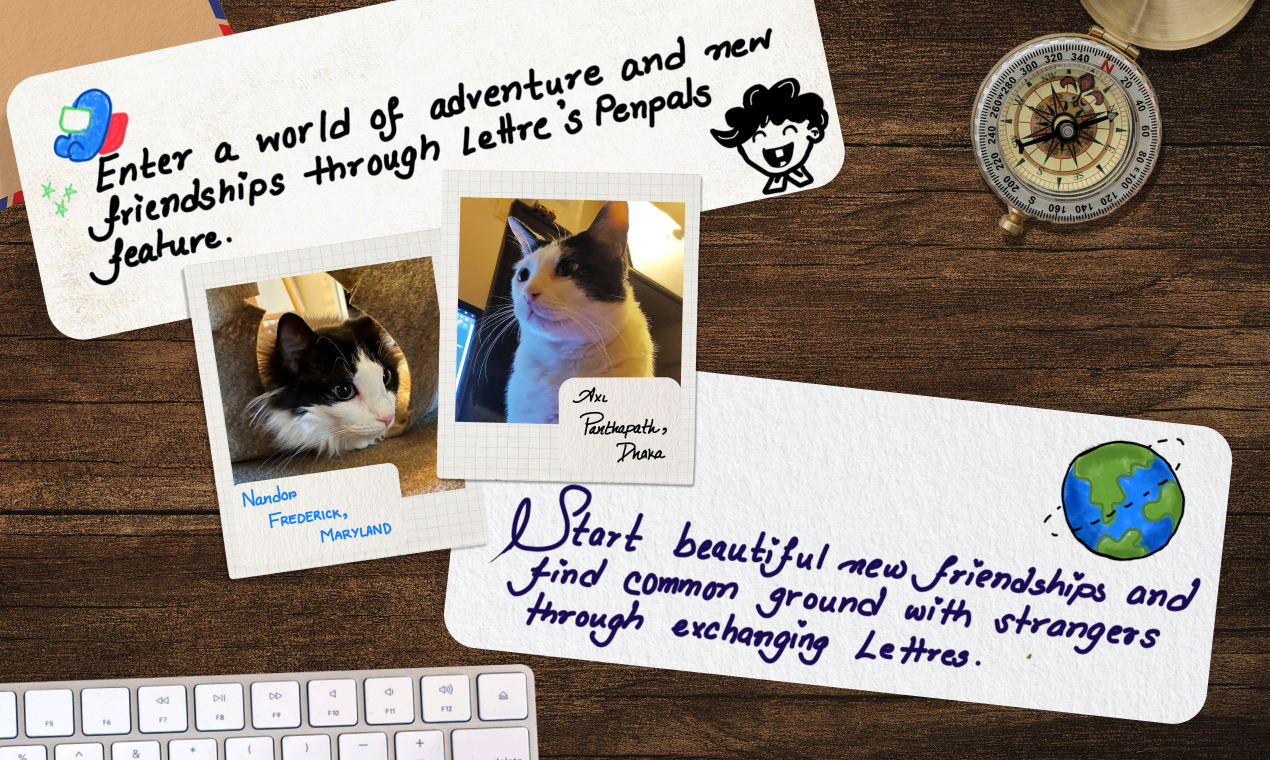 Enter a world of adventure and new
friendships through Lettre's Penpals
feature.
Nandor
FREDERICK,
MARYLAND
Axl
Panthapath,
Dhaka
Start beautiful new friendships and
find common ground with strangers
through exchanging Lettres.
N
20
40
60
80
100
120
160
S
200
220
240
260
280
300
320
340
F5
F6
F7
F8
F9
F10
F11
F12
%
^
&
*
(
)
—
+
delete